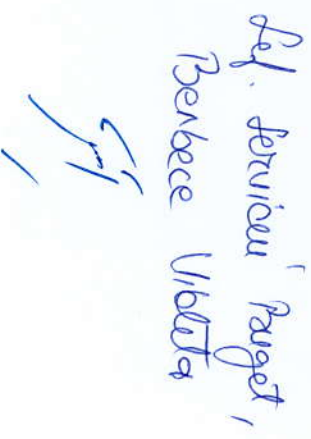 Șef. Serviciu Buget,
Berbece Violeta